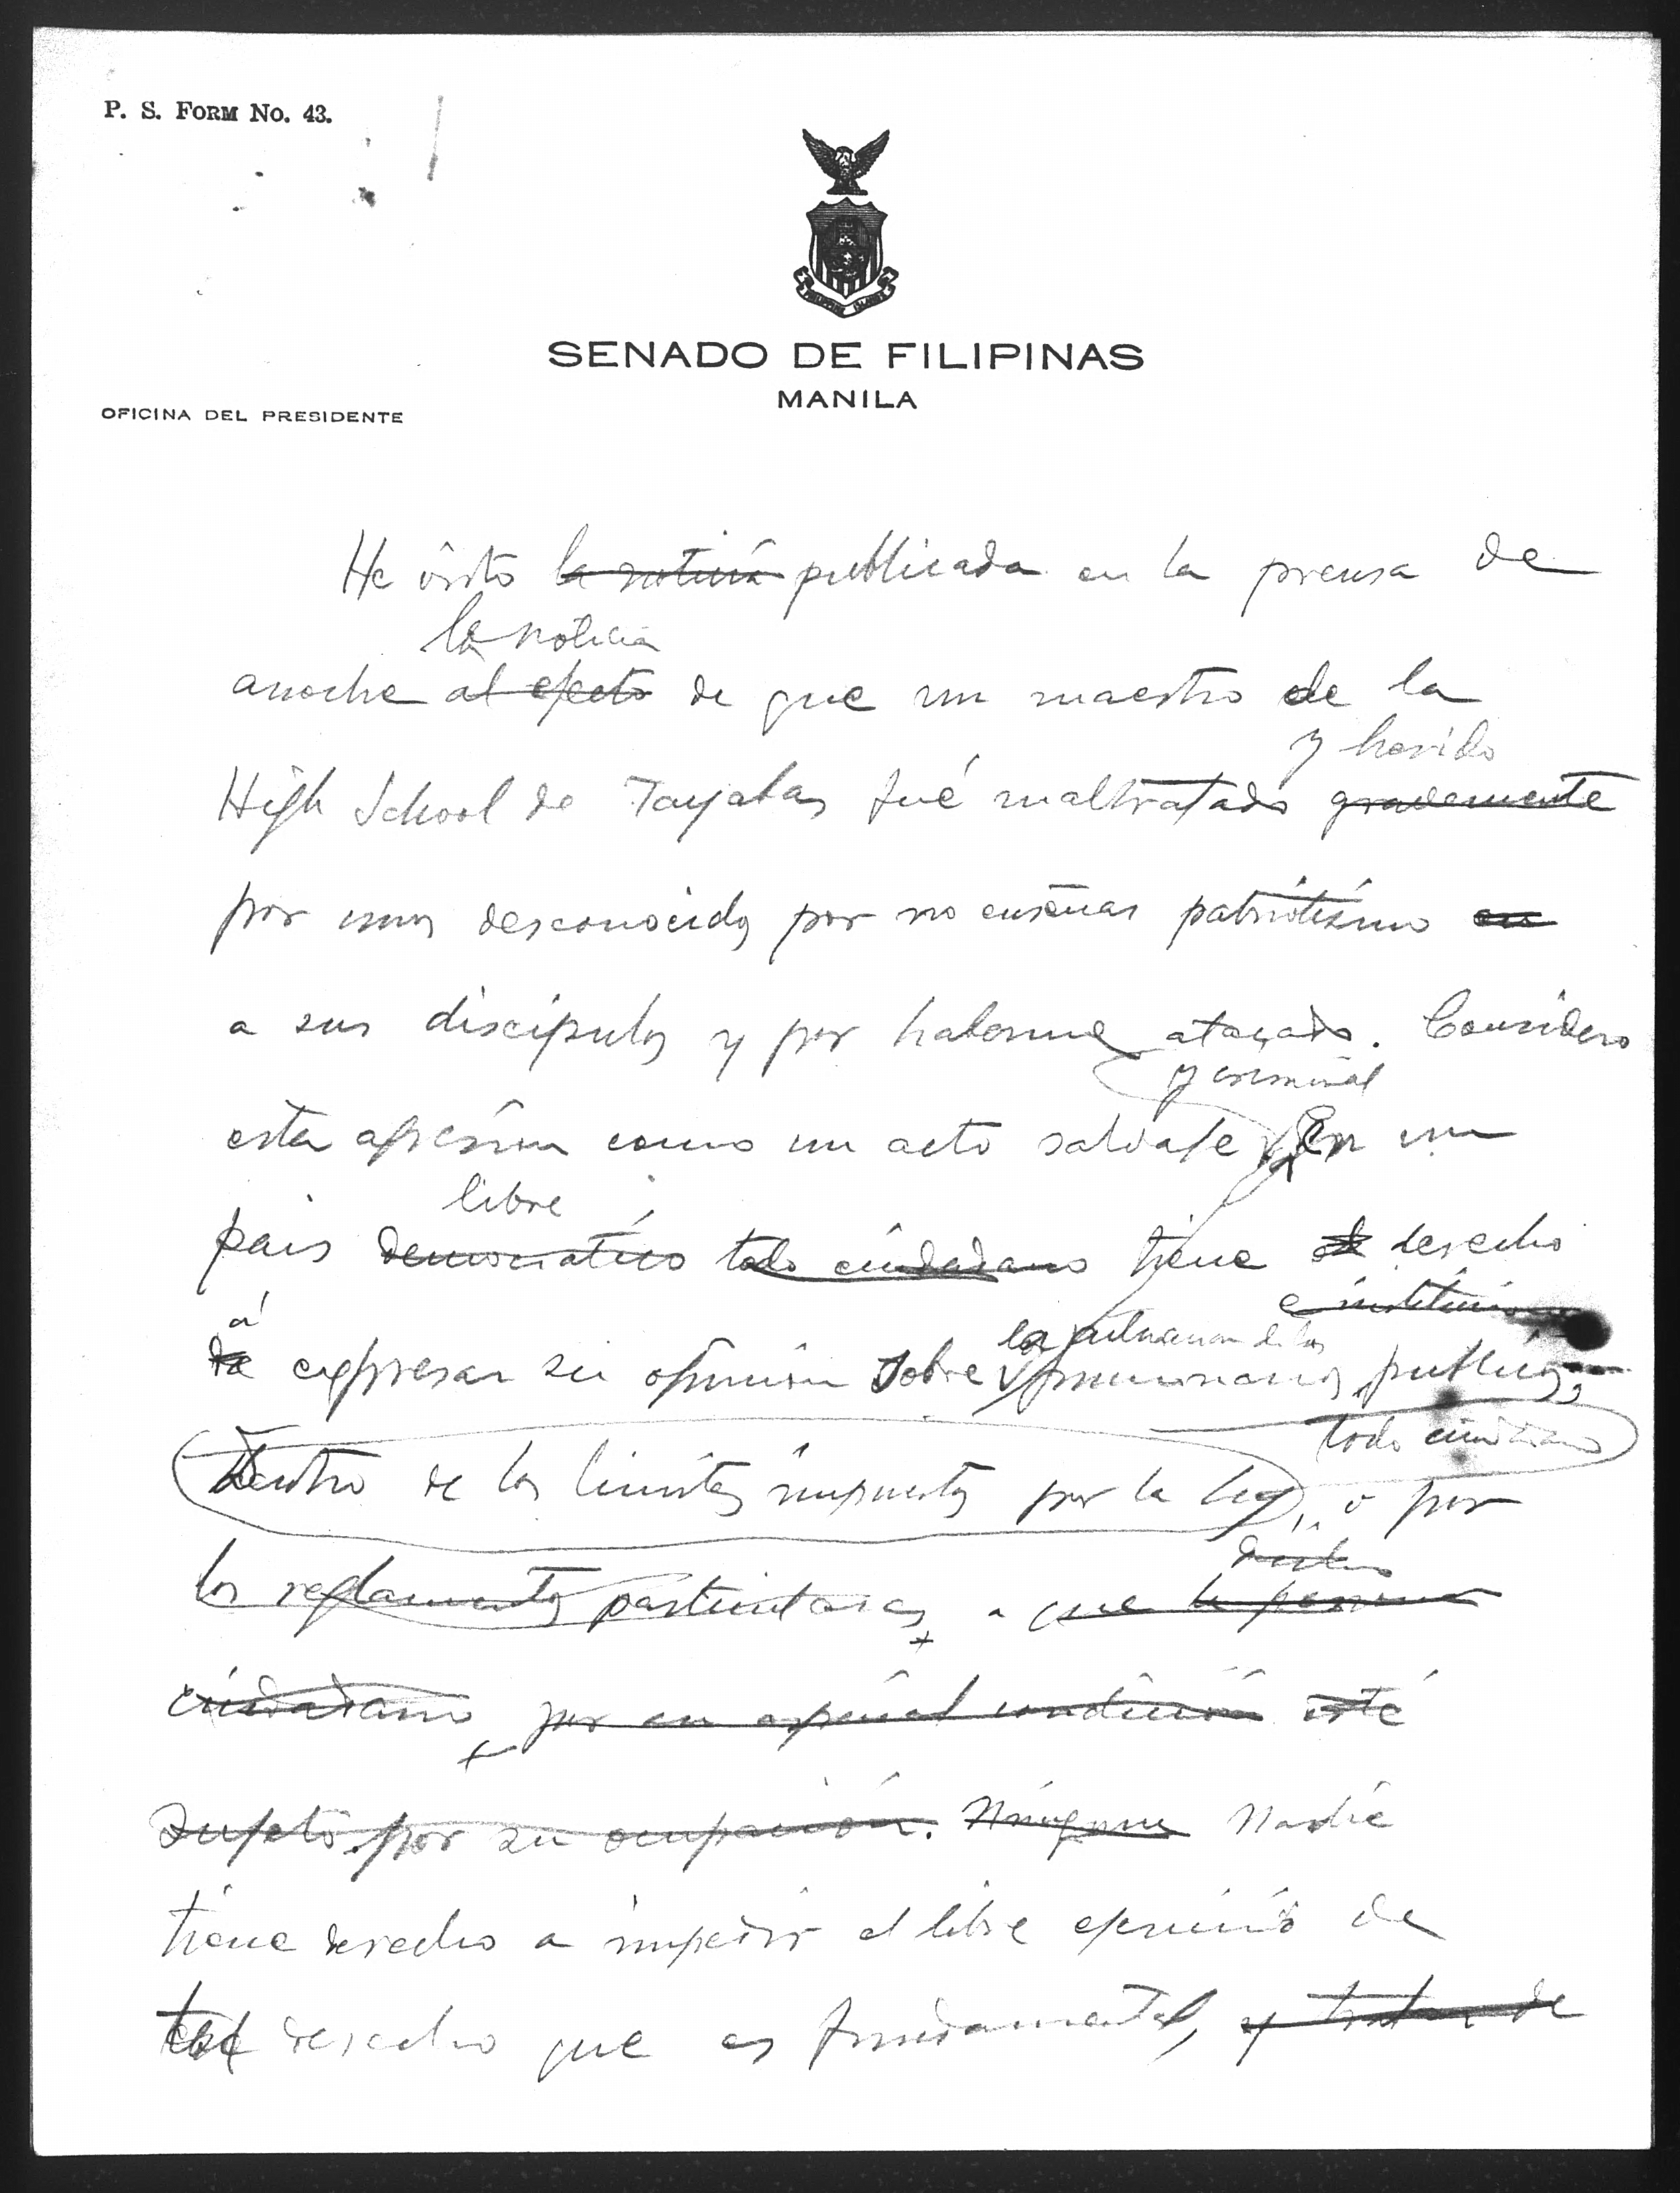 P. S. FORM No. 43.
PHILIPPINE ISLANDS
SENADO DE FILIPINAS
MANILA
OFICINA DEL PRESIDENTE
He visto la noticia publicada en la prensa de
la noticia
anoche al efecto de que un maestro de la
y herido
High School de Tayabas fué maltratado gravemente
por unos desconocidos por no enseñar patriotismo en
a sus discípulos y por haberme atacado. Considero
y criminal
esta agresión como un acto salvaje En un
libre
pais democratico todo ciudadano tiene el derecho
e instituciones
á
la actuacion de los
de expresar su opinión sobre funcionarios publicos,
todo ciudadano
Dentro de los limites impuestos por la ley, o por
los reglamentos particulares a que
ciudadano por su especial condición esté
sujeto por su ocupación. Ninguno Nadie
tiene derecho a impedir el libre ejercicio de
derecho que es fundamental, y tratar de